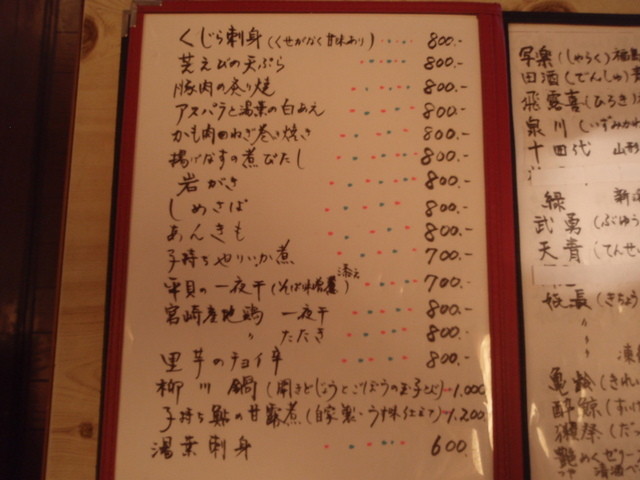 くじら刺身(くせがなく甘味あり) 800.-
芝えびの天ぷら 800.-
豚肉の炙り焼 800.-
アスパラと湯葉の白あえ 800.-
かも肉のねぎ巻き焼き 800.-
揚げなすの煮びたし 800.-
岩がき 800.-
しめさば 800.-
あんきも 800.-
子持ちやりいか煮 700.-
平貝の一夜干(そば味噌 添え) 700.-
宮崎産地鶏 一夜干 800.-
〃 たたき 800.-
里芋のチョイ辛 800.-
柳川鍋(開きどじょうとごぼうの玉子とじ) 1.000
子持ち鮎の甘露煮(自家製・うす味仕立て) 1.200
湯葉刺身 600.-
写楽(しゃらく)福島
田酒(でんしゅ)青
飛露喜(ひろき)
泉川(いずみかわ
十四代 山形
緑 新潟
武勇(ぶゆう
天青(てんせい
板長(きちょう
〃
〃 凍
亀齢(きれ
酔鯨(すいげ
獺祭(だっ
艶めくゼリー